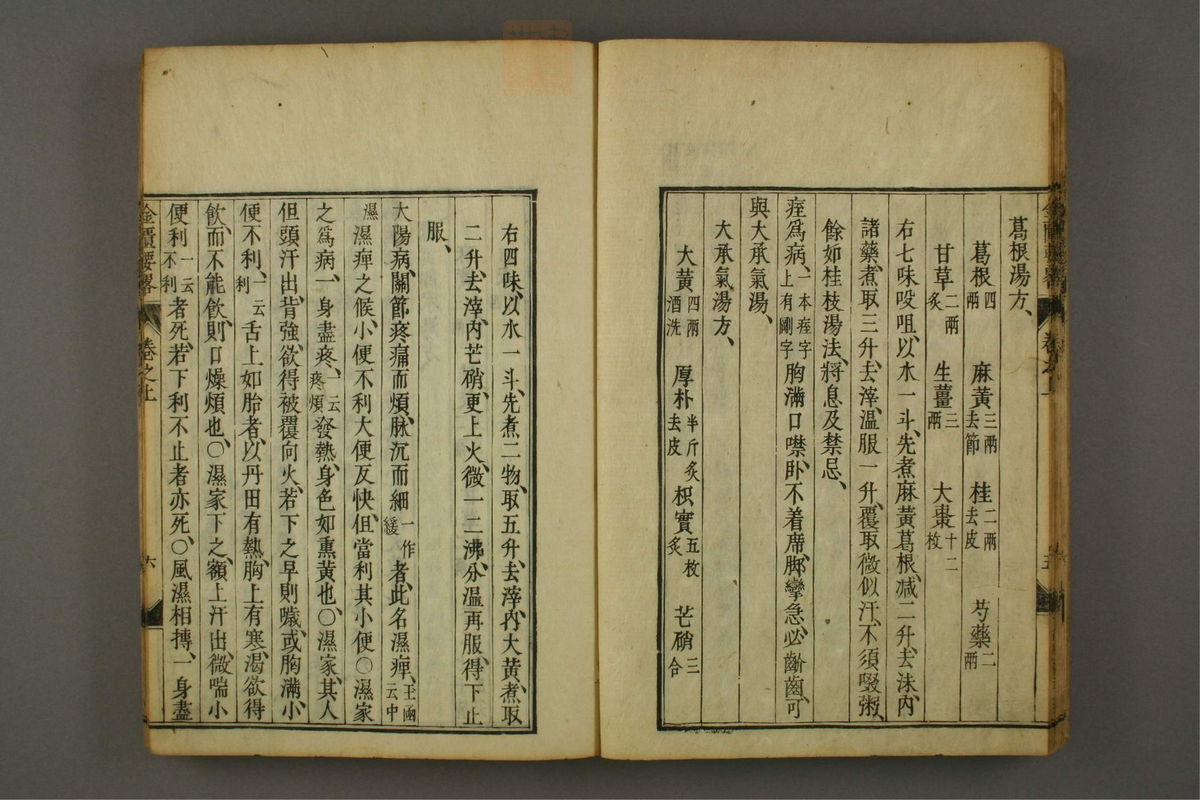 葛根湯方、
葛根四兩 麻黃三兩去節 桂二兩去皮 芍藥二兩
甘草二兩炙 生薑三兩 大棗十二枚
右七味㕮咀、以水一斗、先煮麻黃葛根、減二升、去沫、內
諸藥、煮取三升、去滓、溫服一升、覆取微似汗、不須啜粥、
餘如桂枝湯法、將息及禁忌、
痓爲病、一本痓字上有剛字胸滿口噤、臥不着席、脚攣急、必齘齒、可
與大承氣湯、
大承氣湯方、
大黃四兩酒洗 厚朴半斤炙去皮 枳實五枚炙 芒硝三合
右四味、以水一斗、先煮二物、取五升、去滓、內大黃、煮取
二升、去滓、內芒硝、更上火、微一二沸、分溫再服、得下止
服、
太陽病、關節疼痛而煩、脉沉而細一作緩者、此名濕痺、玉函云中
濕濕痺之候、小便不利、大便反快、但當利其小便○濕家
之爲病、一身盡疼、一云疼煩發熱、身色如熏黃也、○濕家、其人
但頭汗出、背強、欲得被覆向火、若下之早則噦、或胸滿、小
便不利、一云利舌上如胎者、以丹田有熱、胸上有寒、渴欲得
飲、而不能飲、則口燥煩也、○濕家下之、額上汗出、微喘、小
便利一云不利者死、若下利不止者亦死、○風濕相搏、一身盡
金匱要畧 卷之上 六